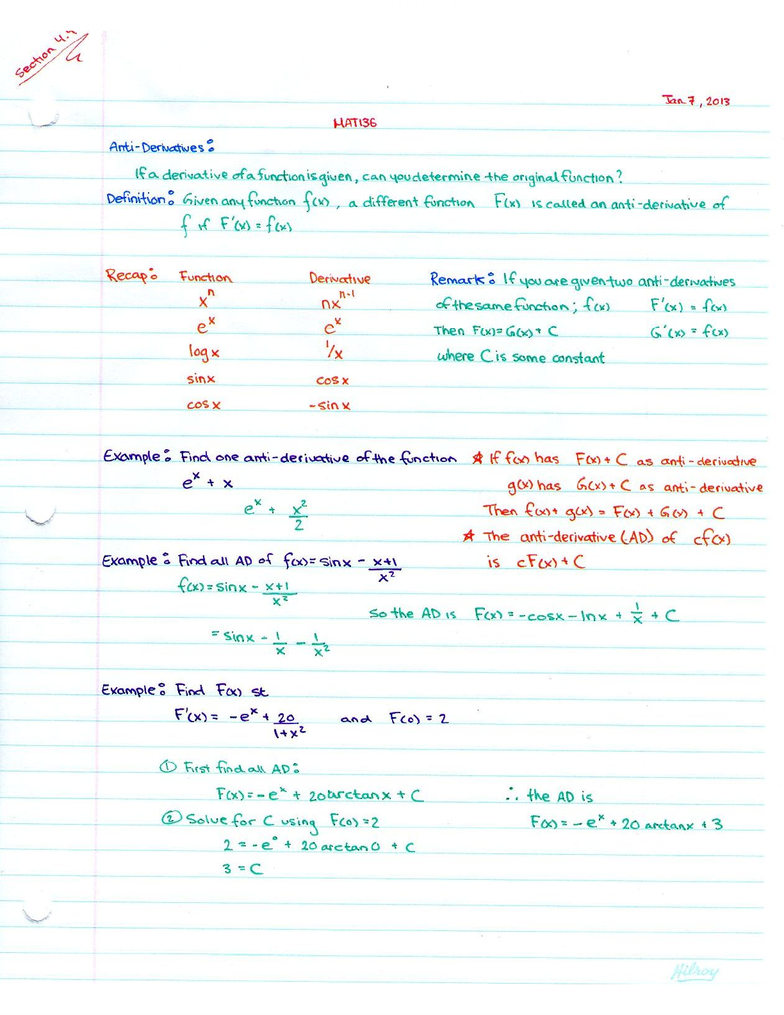 Section 4.
Jan 7, 2013
MAT136
Anti-Derivatives:
If a derivative of a function is given, can you determine the original function?
Definition: Given any function f(x), a different function F(x) is called an anti-derivative of
f if F'(x) = f(x)
Recap: Function Derivative
xⁿ nxⁿ⁻¹
eˣ cˣ
log x 1/x
sinx cosx
cosx -sinx
Remark: If you are given two anti-derivatives
of the same function; f(x) F'(x) = f(x)
Then F(x)=G(x)+C G'(x) = f(x)
where C is some constant
Example: Find one anti-derivative of the function
eˣ + x
eˣ + x²/2
★ If f(x) has F(x)+C as anti-derivative
g(x) has G(x)+C as anti-derivative
Then f(x)+g(x) = F(x)+G(x)+C
★ The anti-derivative (AD) of cf(x)
is cF(x)+C
Example: Find all AD of f(x)=sinx - x+1/x²
f(x)=sinx - x+1/x²
= sinx - 1/x - 1/x²
So the AD is F(x) = -cosx - lnx + 1/x + C
Example: Find F(x) st
F'(x) = -eˣ + 20/1+x² and F(0) = 2
① First find all AD:
F(x)=-eˣ + 20arctanx + C
② Solve for C using F(0)=2
2 = -e° + 20arctan0 + C
3 = C
∴ the AD is
F(x) = -eˣ + 20 arctanx + 3
Hilroy